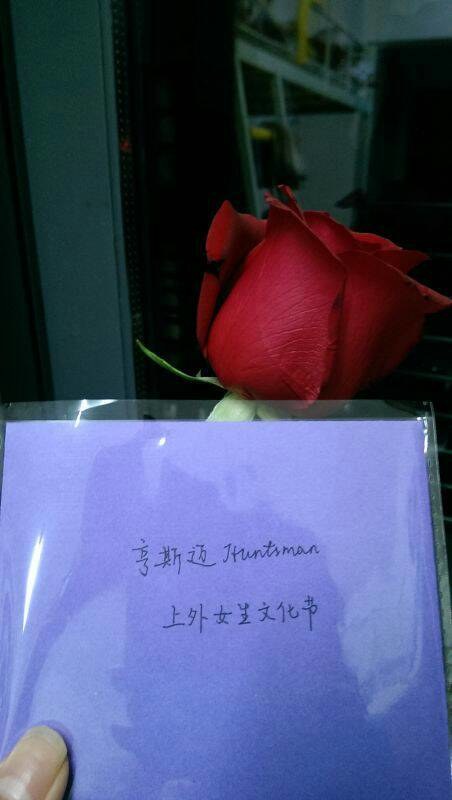 亨斯迈 Huntsman
上外女生文化节